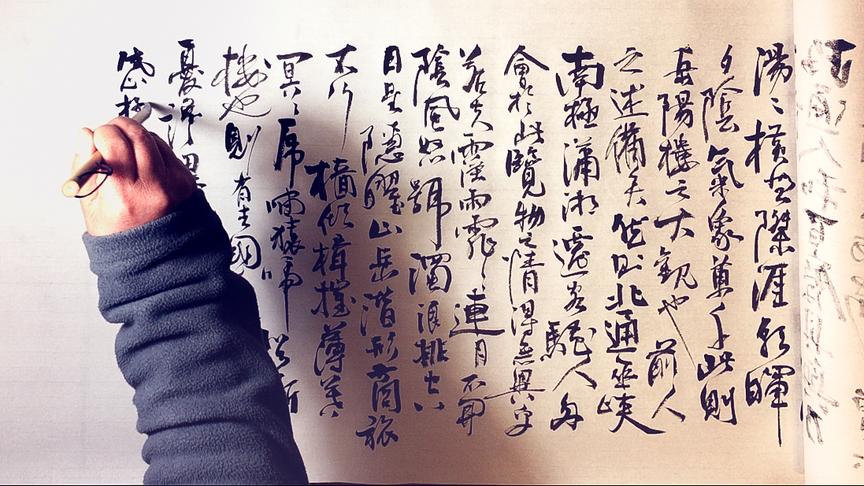 湯〻橫無際涯朝暉
夕陰氣象萬千此則
岳陽樓之大觀也前人
之述備矣然則北通巫峽
南極瀟湘遷客騷人多
會於此覽物之情得無異乎
若夫霪雨霏〻連月不開
陰風怒號濁浪排空
日星隱曜山岳潛形商旅
不行檣傾楫摧薄暮
冥〻虎嘯猿啼登斯
樓也則有去國
憂讒畏
感極